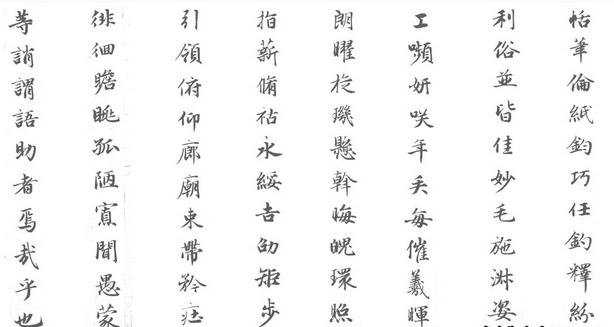 恬筆倫紙鈞巧任釣釋紛
利俗並皆佳妙毛施淑姿
工嚬妍咲年矢每催羲暉
朗曜旋璣懸斡晦魄環照
指薪脩祜永綏吉劭矩步
引領俯仰廊廟束帶矜莊
徘徊瞻眺孤陋寡聞愚蒙
等誚謂語助者焉哉乎也